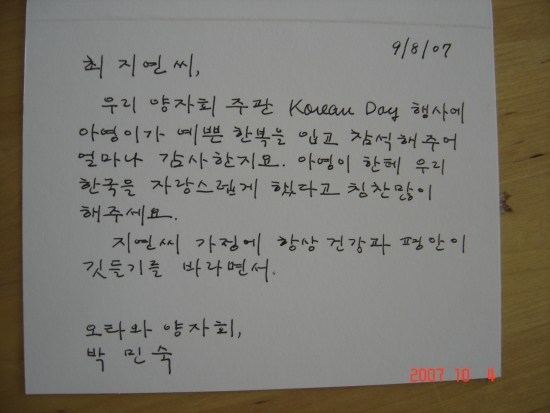 9/8/07
최 지연씨,
우리 양자회 주관 Korean Day 행사에
아영이가 예쁜 한복을 입고 참석해주어
얼마나 감사한지요. 아영이 한테 우리
한국을 자랑스럽게 했다고 칭찬많이
해주세요.
지연씨 가정에 항상 건강과 평안이
깃들기를 바라면서.
오타와 양자회,
박 민숙
2007 10 4